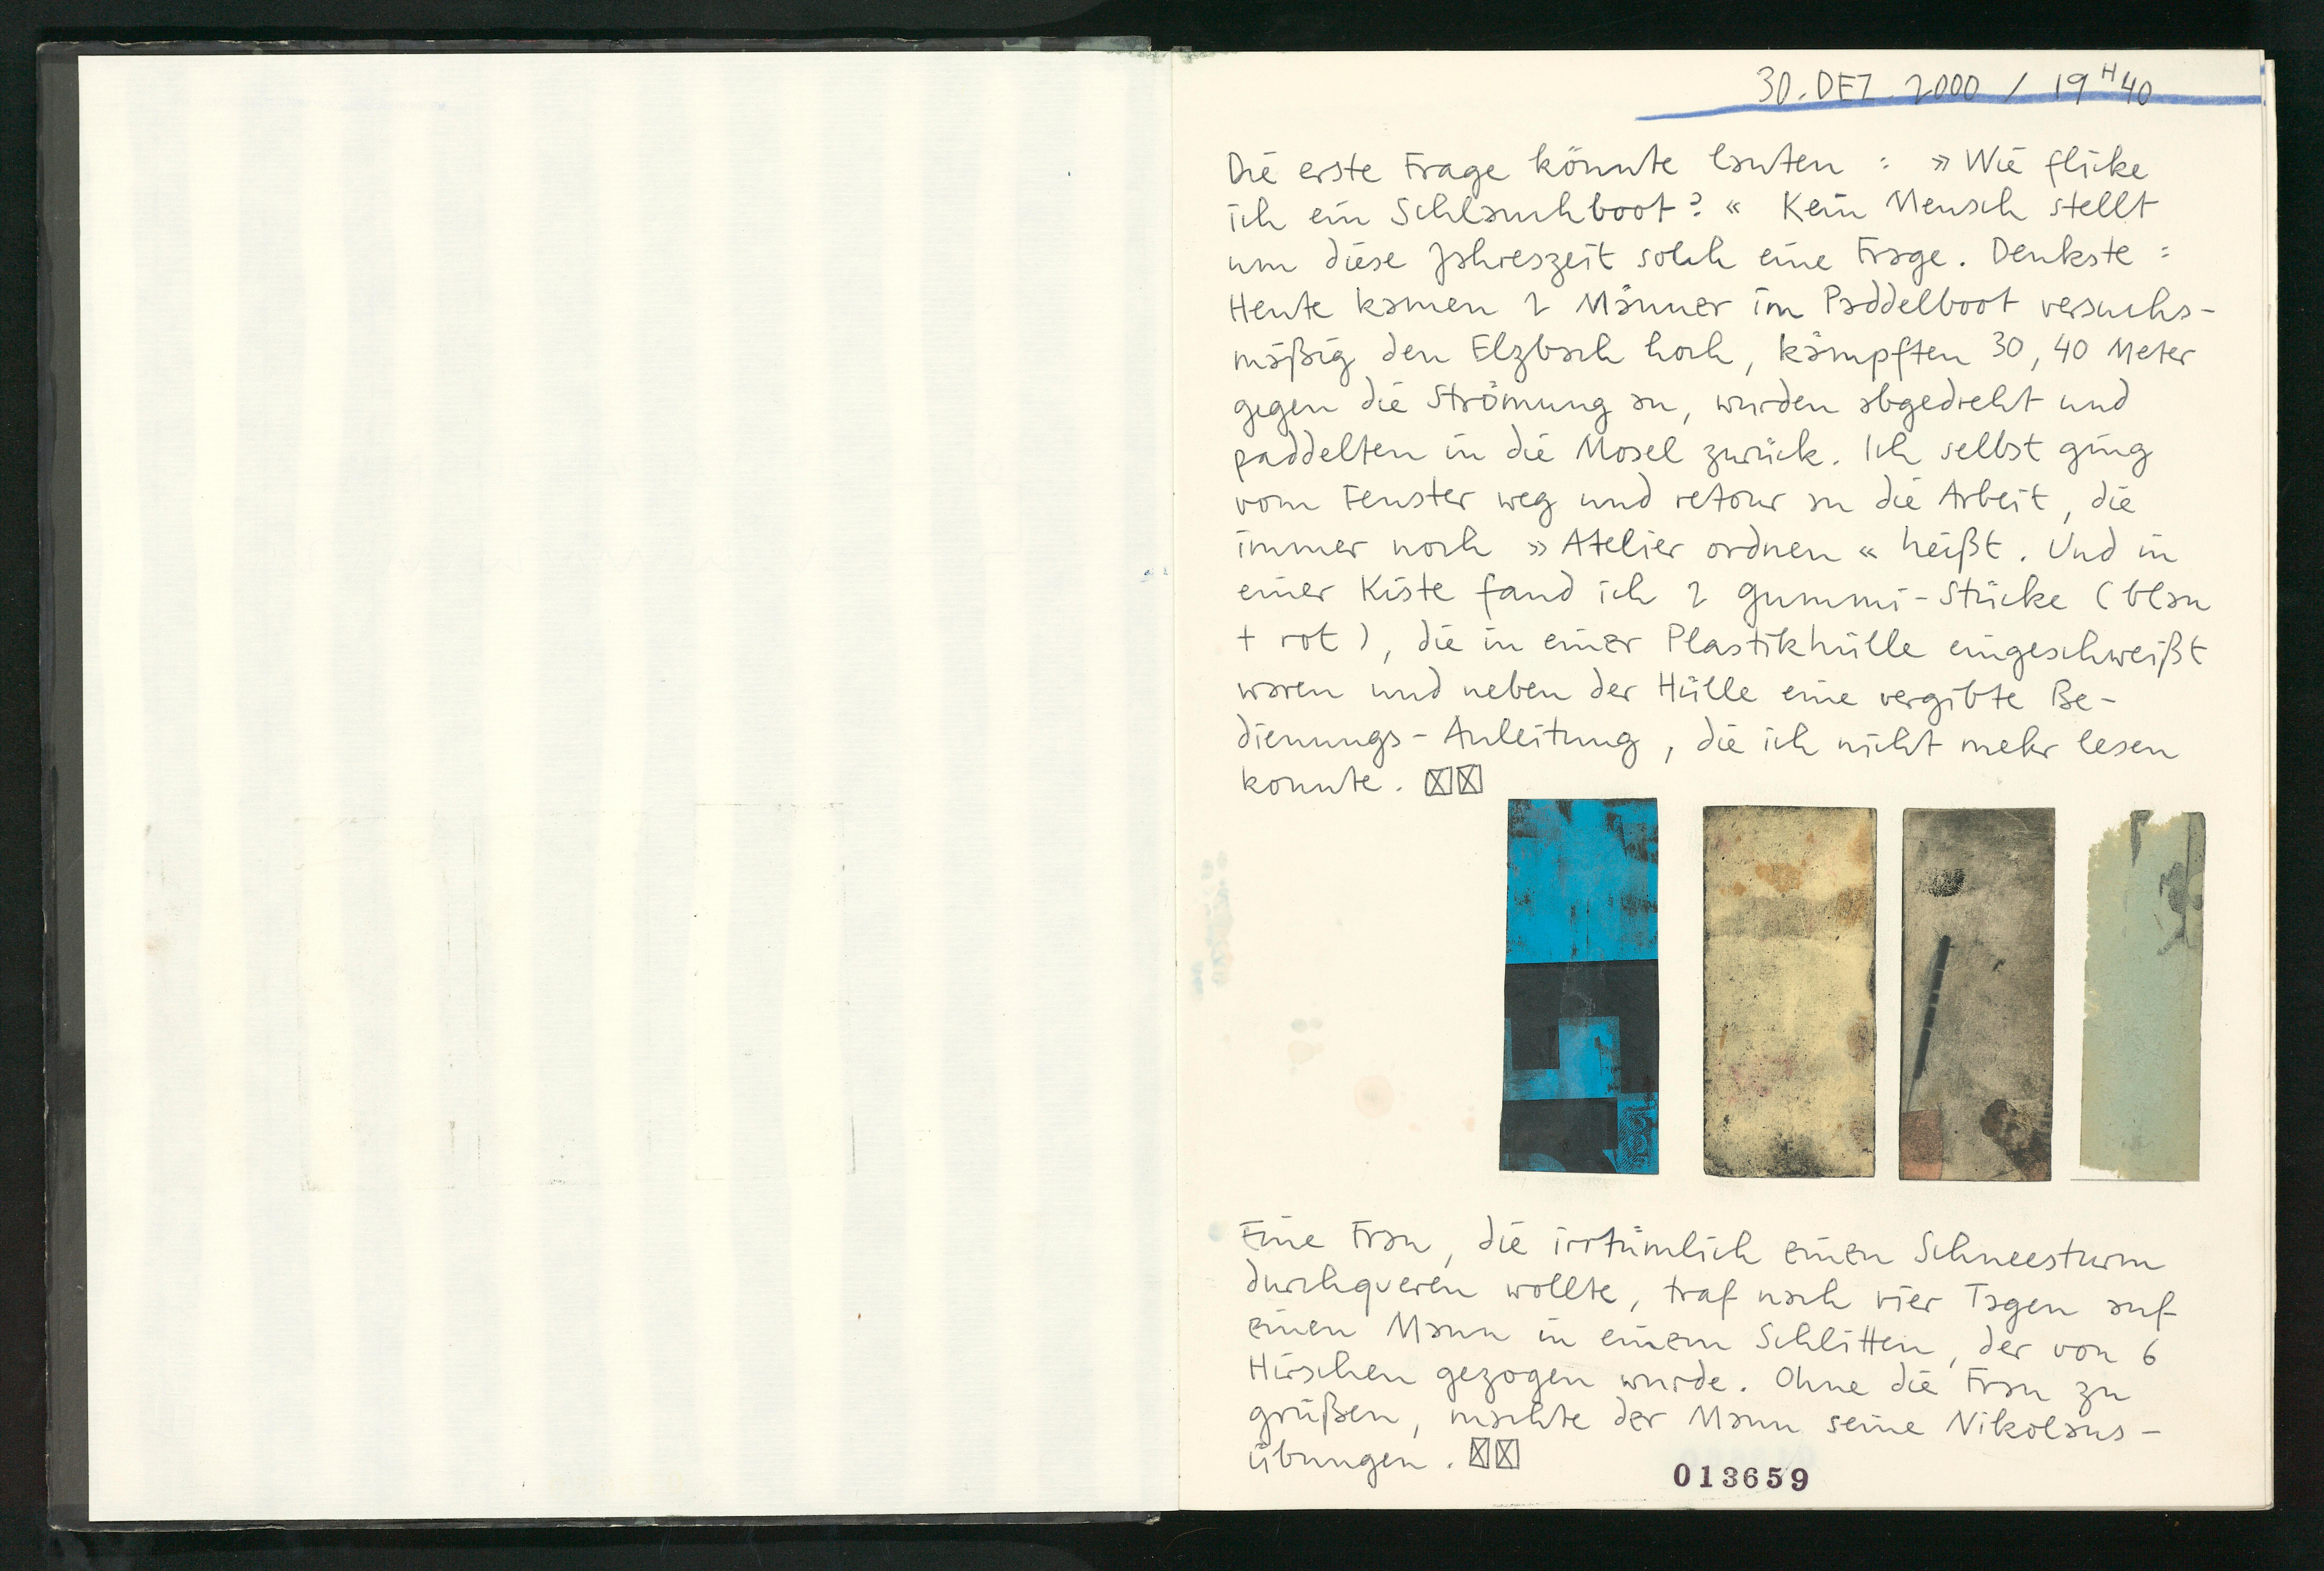 30. DEZ. 2000 / 19 H 40
Die erste Frage könnte lauten : »Wie flicke
ich ein Schlauchboot?« Kein Mensch stellt
um diese Jahreszeit solch eine Frage. Denkste :
Heute kamen 2 Männer im Paddelboot versuchs-
mäßig den Elzbach hoch, kämpften 30, 40 Meter
gegen die Strömung an, wurden abgedreht und
paddelten in die Mosel zurück. Ich selbst ging
vom Fenster weg und retour an die Arbeit, die
immer noch »Atelier ordnen« heißt. Und in
einer Kiste fand ich 2 Gummi-Stücke (blau
+ rot), die in einer Plastikhülle eingeschweißt
waren und neben der Hülle eine vergilbte Be-
dienungs-Anleitung, die ich nicht mehr lesen
konnte.
Eine Frau, die irrtümlich einen Schneesturm
durchqueren wollte, traf nach vier Tagen auf
einen Mann in einem Schlitten, der von 6
Hirschen gezogen wurde. Ohne die Frau zu
grüßen, machte der Mann seine Nikolaus-
übungen.
013659